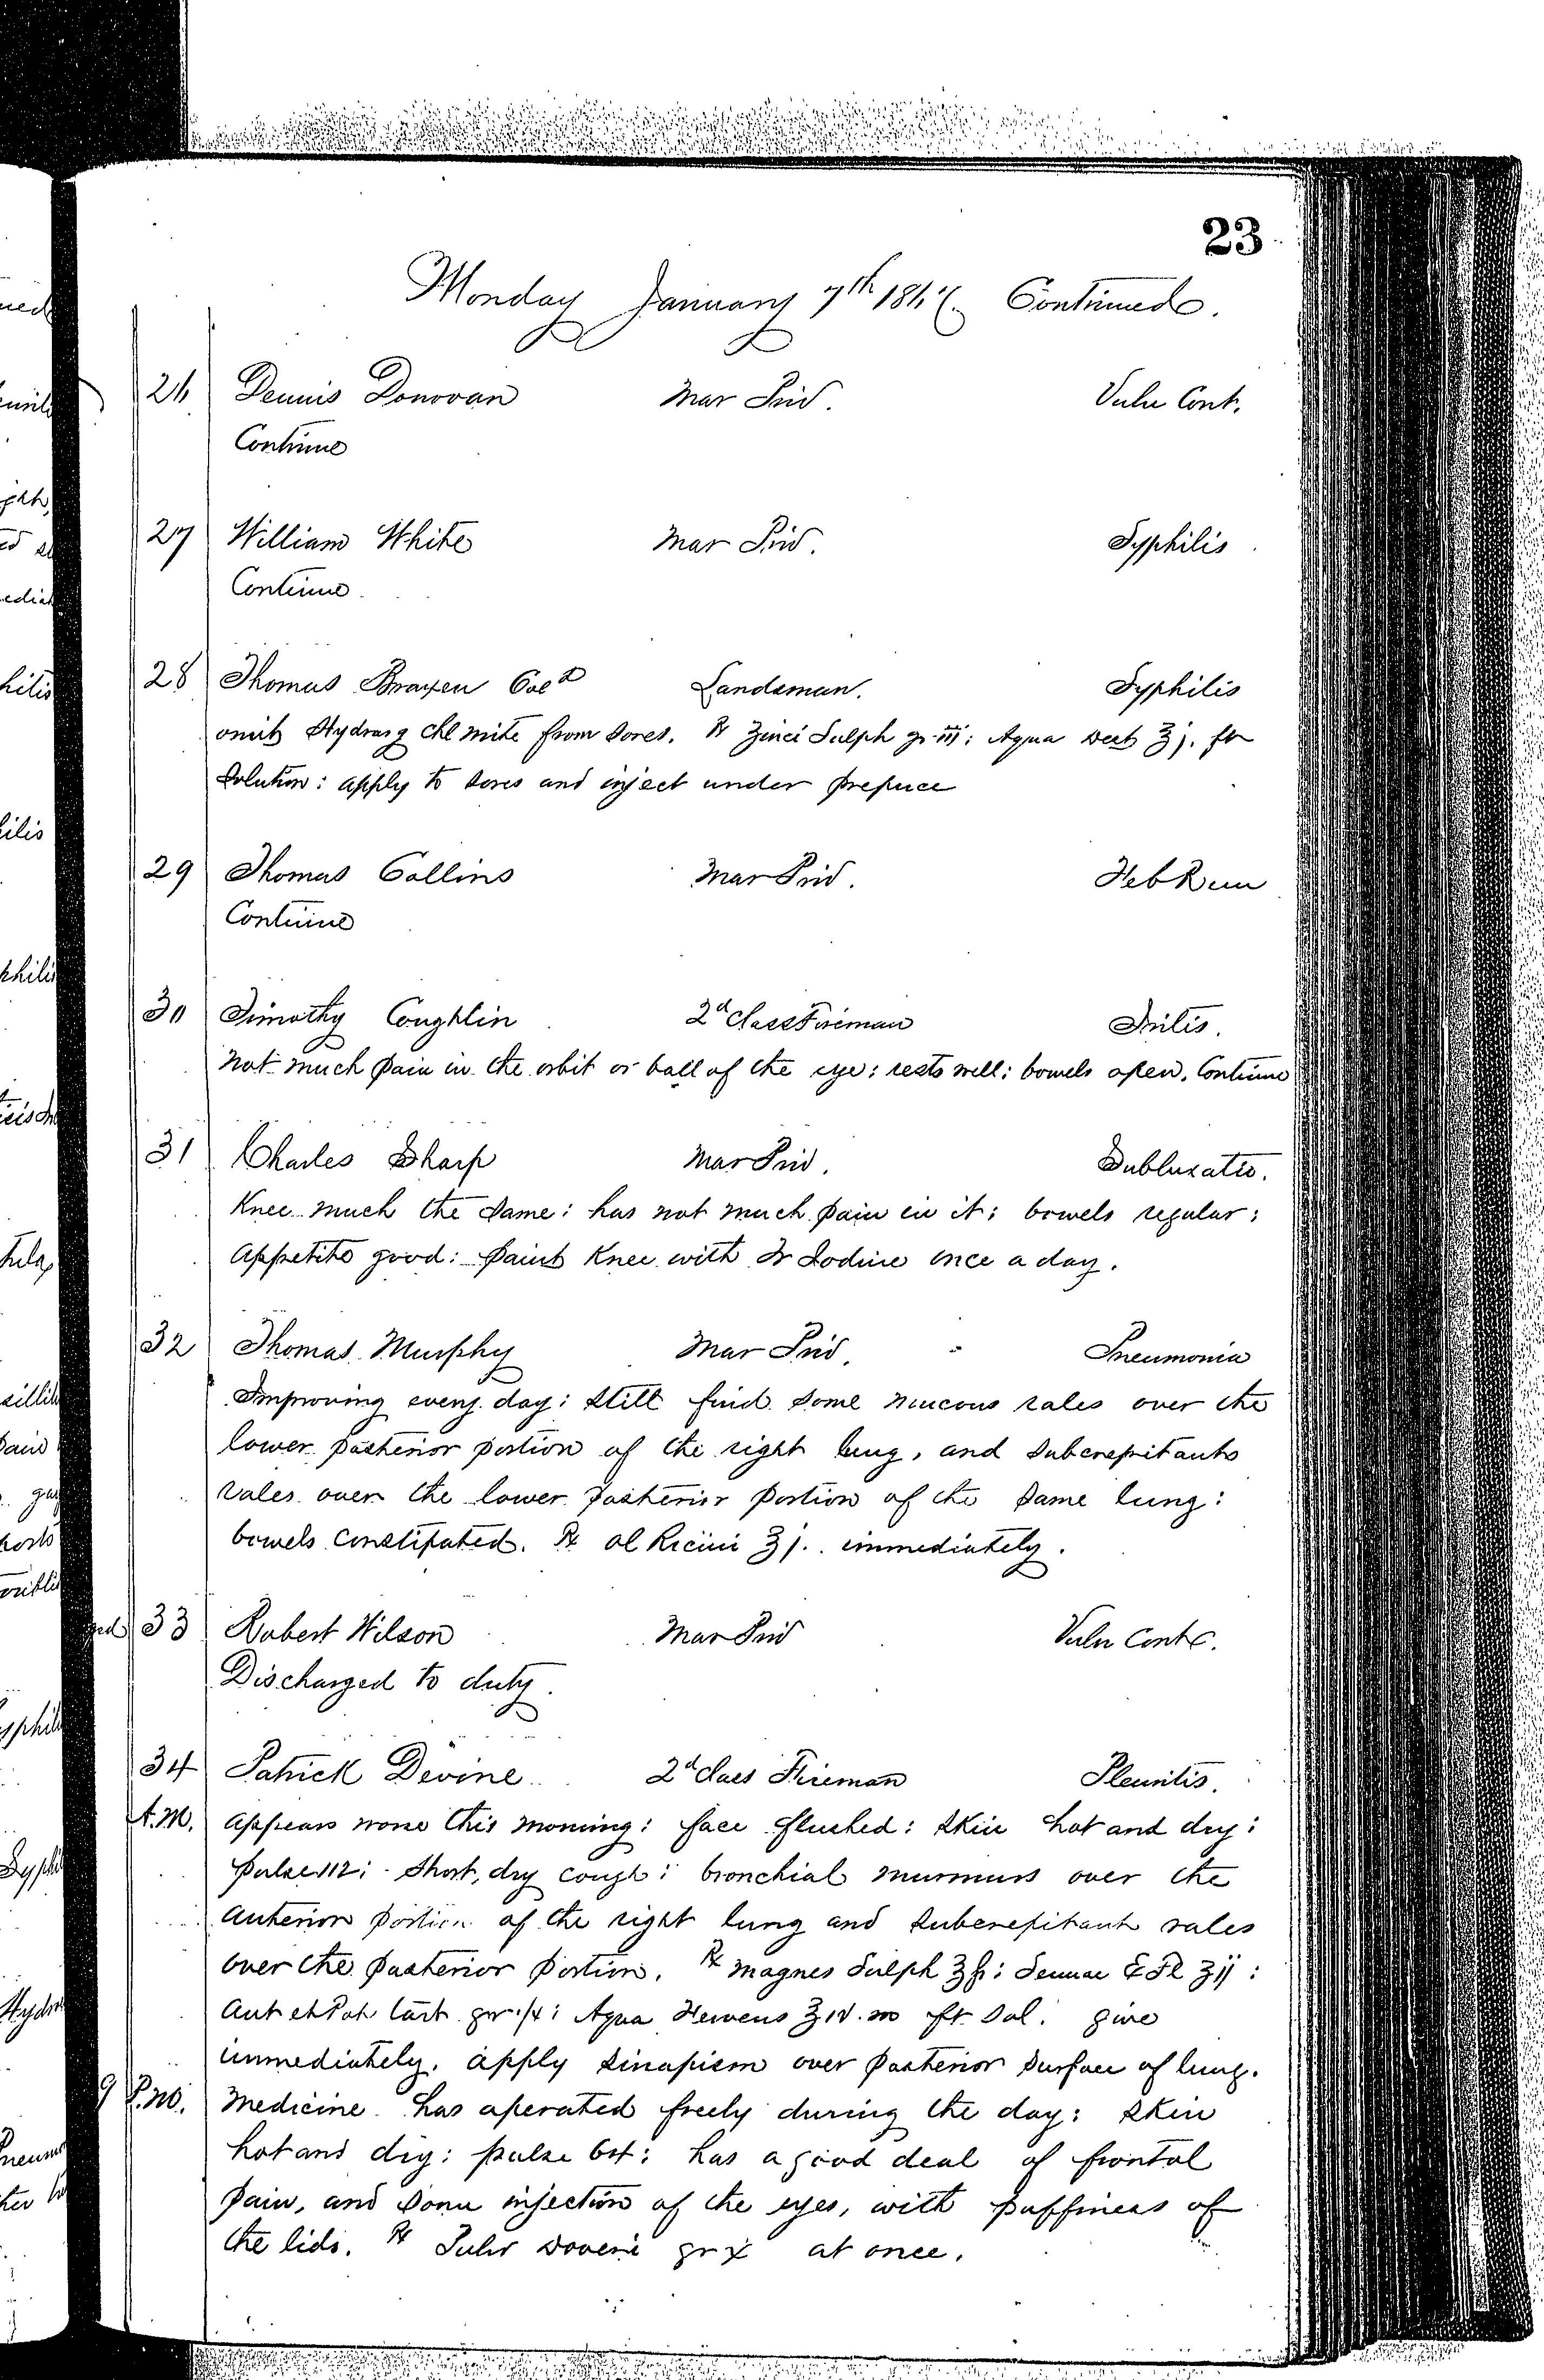 23
Monday January 7th 186 Continued.
26 Dennis Donovan Mar Priv. Vuln Cont.
Continue
27 William White Mar Priv. Syphilis
Continue
28 Thomas Cold Landsman. Syphilis
omit Hydrarg Chl mite from sores. ℞ Zinci Sulph gr iij: Aqua Dest ℥j. ft
Solution: apply to sores and inject under prepuce
29 Thomas Collins Mar Priv. Feb Rem
Continue
30 Timothy Coughlin 2d Class Fireman Iritis.
not much pain in the orbit or ball of the eye: rests well: bowels open. Continue
31 Charles Sharp Mar Priv. Subluxatio.
Knee much the same: has not much pain in it: bowels regular:
appetite good: paint Knee with Tr Iodine once a day.
32 Thomas Murphy Mar Priv. Pneumonia
Improving every day: still find some mucous rales over the
lower posterior portion of the right lung, and subcrepitant
rales over the lower posterior portion of the same lung:
bowels constipated. ℞ Ol Ricini ℥j. immediately.
33 Robert Wilson Mar Priv Vuln Cont.
Discharged to duty.
34 Patrick Devine 2d Class Fireman Pleuritis.
A.M. appears worse this morning: face flushed: skin hot and dry:
pulse 112: short, dry cough: bronchial murmurs over the
anterior portion of the right lung and subcrepitant rales
over the posterior portion. ℞ Magnes Sulph ℥ss: Sennae E Fl ʒij:
Ant et Pot Tart gr 1/4: Aqua Fervens ℥iv. m ft sol. give
immediately. apply sinapism over posterior surface of lung.
9 P.M. Medicine has operated freely during the day: skin
hot and dry: pulse has a good deal of frontal
pain, and some injection of the eyes, with puffiness of
the lids. ℞ Pulv Doveri gr x at once.